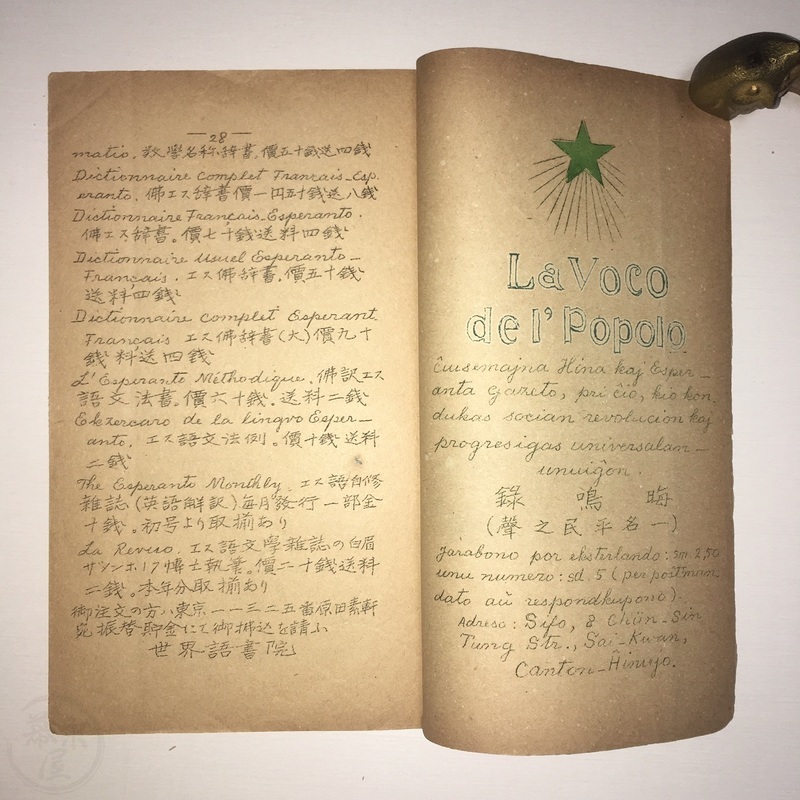 — 28 —
matio. 数學名称辞書. 價五十錢送四錢
Dictionnaire complet Français-Esp.
eranto. 佛エス辞書價一円五十錢送八錢
Dictionnaire Français-Esperanto.
佛エス辞書。價七十錢送料四錢
Dictionnaire usuel Esperanto-
Français. エス佛辞書. 價五十錢
送料四錢
Dictionnaire complet Esperant
Français エス佛辞書(大)價九十
錢料送四錢
L'Esperanto Méthodique. 佛訳エス
語文法書。價六十錢. 送料二錢
Ekzercaro de la lingvo Esper-
anto. エス語文法例。價十錢送料
二錢
The Esperanto Monthly. エス語自修
雑誌(英語解訳)毎月發行一部金
十錢。初号より取揃あり
La Revuo. エス語文學雑誌の白眉
博士執筆。價二十錢送料
二錢。本年分取揃あり
御注文の方ハ東京一一三二五番原田素軒
宛振替貯金にて御拂込を請ふ
世界語書院
La Voco
de l' Popolo
Ĉiusemajna Ĥina kaj Esper-
anta gazeto, pri ĉio, kio kon
dukas socian revolucion kaj
progresigas universalan-
unuigôn.
錄 鳴 晦
(聲之民平名一)
Jarabono por eksterlando: sm. 2,50
unu numero: sd. 5 (per postman
dato aŭ respondkupono).
Adreso: Sifo, 8 Chün-Sin
Tung Str., Sai-Kwan,
Canton-Ĥinujo.